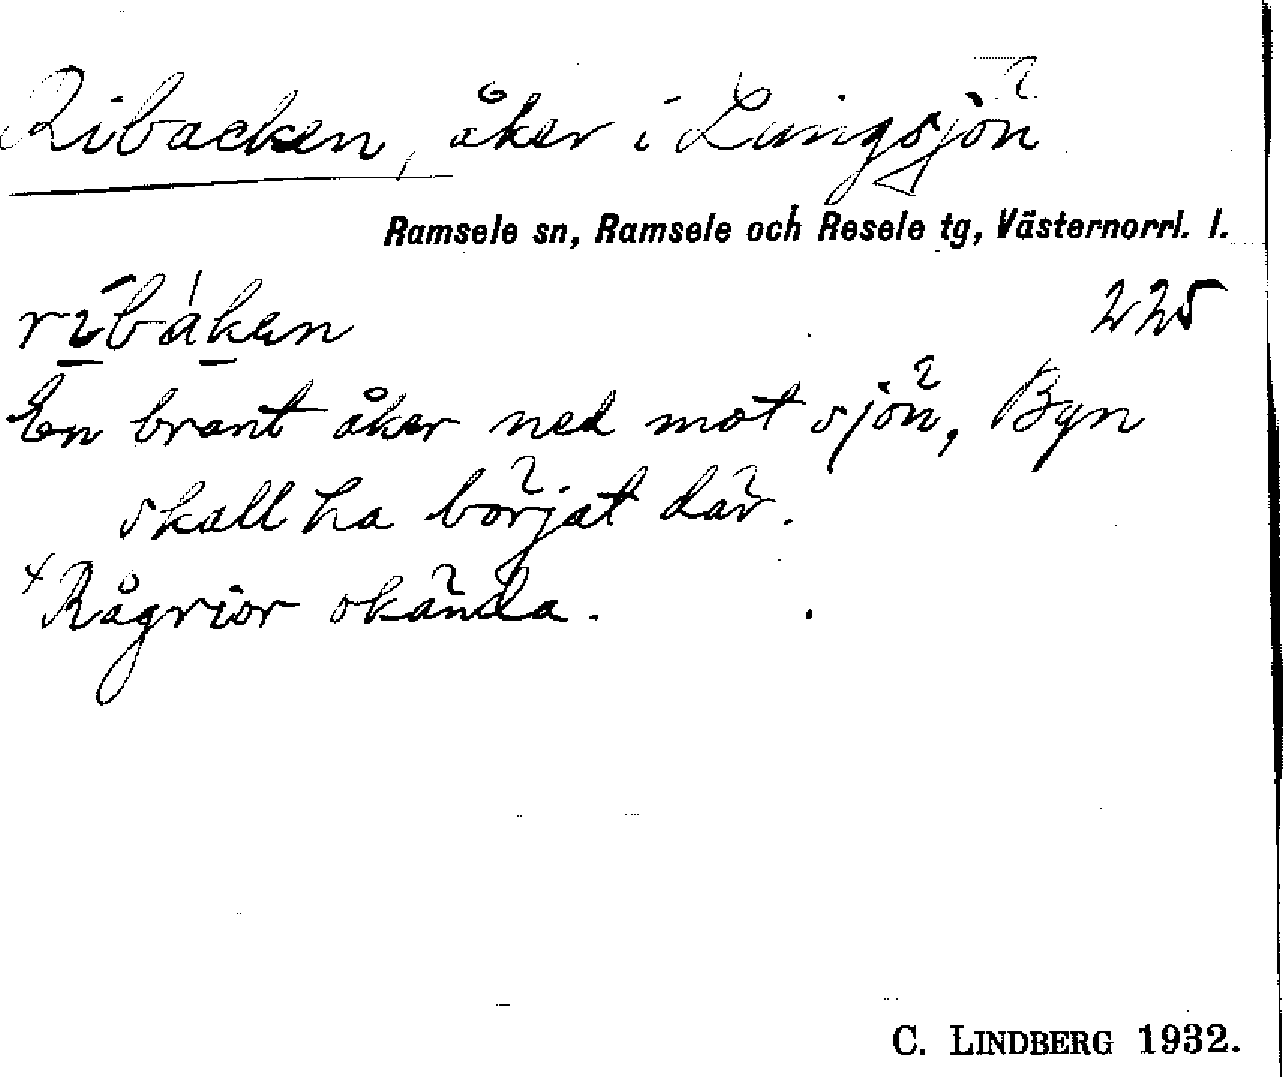 Ribacken, åker i Lungsjön
Ramsele sn, Ramsele och Resele tg, Västernorrl. l.
rībáken 225
En brant åker ned mot sjön, Byn
skall ha börjat där.
x Rågrior okända.
C. LINDBERG 1932.